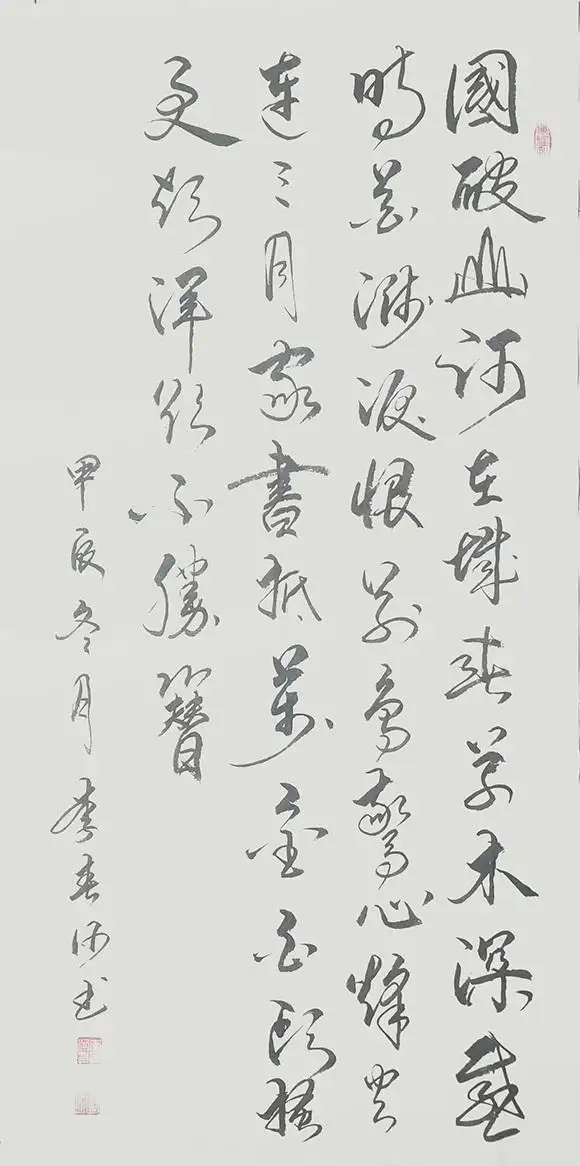 國破山河在城春草木深感
時花濺淚恨別鳥驚心烽火
連三月家書抵萬金白頭搔
更短渾欲不勝簪
甲辰冬月李春书